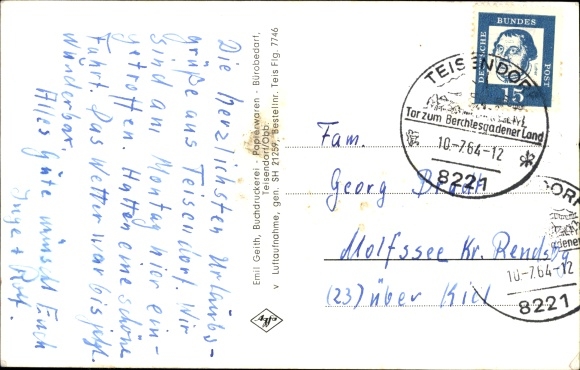 Die herzlichsten Urlaubs-
grüße aus Teisendorf. Wir
sind am Montag hier ein-
getroffen. Hatten eine schöne
Fahrt. Das Wetter war bis jetzt
wunderbar.
Alles Gute wünscht Euch
Inge + Rolf.
Emil Geith, Buchdruckerei - Papierwaren - Bürobedarf,
Teisendorf/Obb.
v Luftaufnahme, gen. SH 21259, Bestellnr. Teis Flg. 7746
DEUTSCHE BUNDES POST
15
TEISENDORF
Tor zum Berchtesgadener Land
10-7.64-12
8221
Fam.
Georg
Molfssee Kr. Rendsbg
(23) über Kiel
DORF
dener Land
10-7.64-12
8221